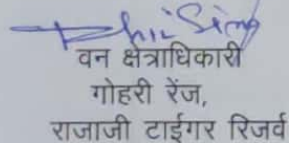 वन क्षेत्राधिकारी
गोहरी रेंज,
राजाजी टाईगर रिजर्व